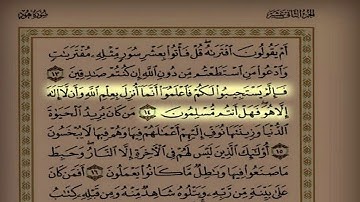 الجزء الثاني عشر
سورة هود
أَمْ يَقُولُونَ ٱفْتَرَىٰهُ قُلْ فَأْتُوا۟ بِعَشْرِ سُوَرٍ مِّثْلِهِۦ مُفْتَرَيَٰتٍ
وَٱدْعُوا۟ مَنِ ٱسْتَطَعْتُم مِّن دُونِ ٱللَّهِ إِن كُنتُمْ صَٰدِقِينَ ١٣
فَإِلَّمْ يَسْتَجِيبُوا۟ لَكُمْ فَٱعْلَمُوٓا۟ أَنَّمَآ أُنزِلَ بِعِلْمِ ٱللَّهِ وَأَن لَّآ إِلَٰهَ
إِلَّا هُوَ فَهَلْ أَنتُم مُّسْلِمُونَ ١٤ مَن كَانَ يُرِيدُ ٱلْحَيَوٰةَ
ٱلدُّنْيَا وَزِينَتَهَا نُوَفِّ إِلَيْهِمْ أَعْمَٰلَهُمْ فِيهَا وَهُمْ فِيهَا لَا يُبْخَسُونَ
١٥ أُو۟لَٰٓئِكَ ٱلَّذِينَ لَيْسَ لَهُمْ فِى ٱلْءَاخِرَةِ إِلَّا ٱلنَّارُ وَحَبِطَ
مَا صَنَعُوا۟ فِيهَا وَبَٰطِلٌ مَّا كَانُوا۟ يَعْمَلُونَ ١٦ أَفَمَن كَانَ
عَلَىٰ بَيِّنَةٍ مِّن رَّبِّهِۦ وَيَتْلُوهُ شَاهِدٌ مِّنْهُ وَمِن قَبْلِهِۦ كِتَٰبُ